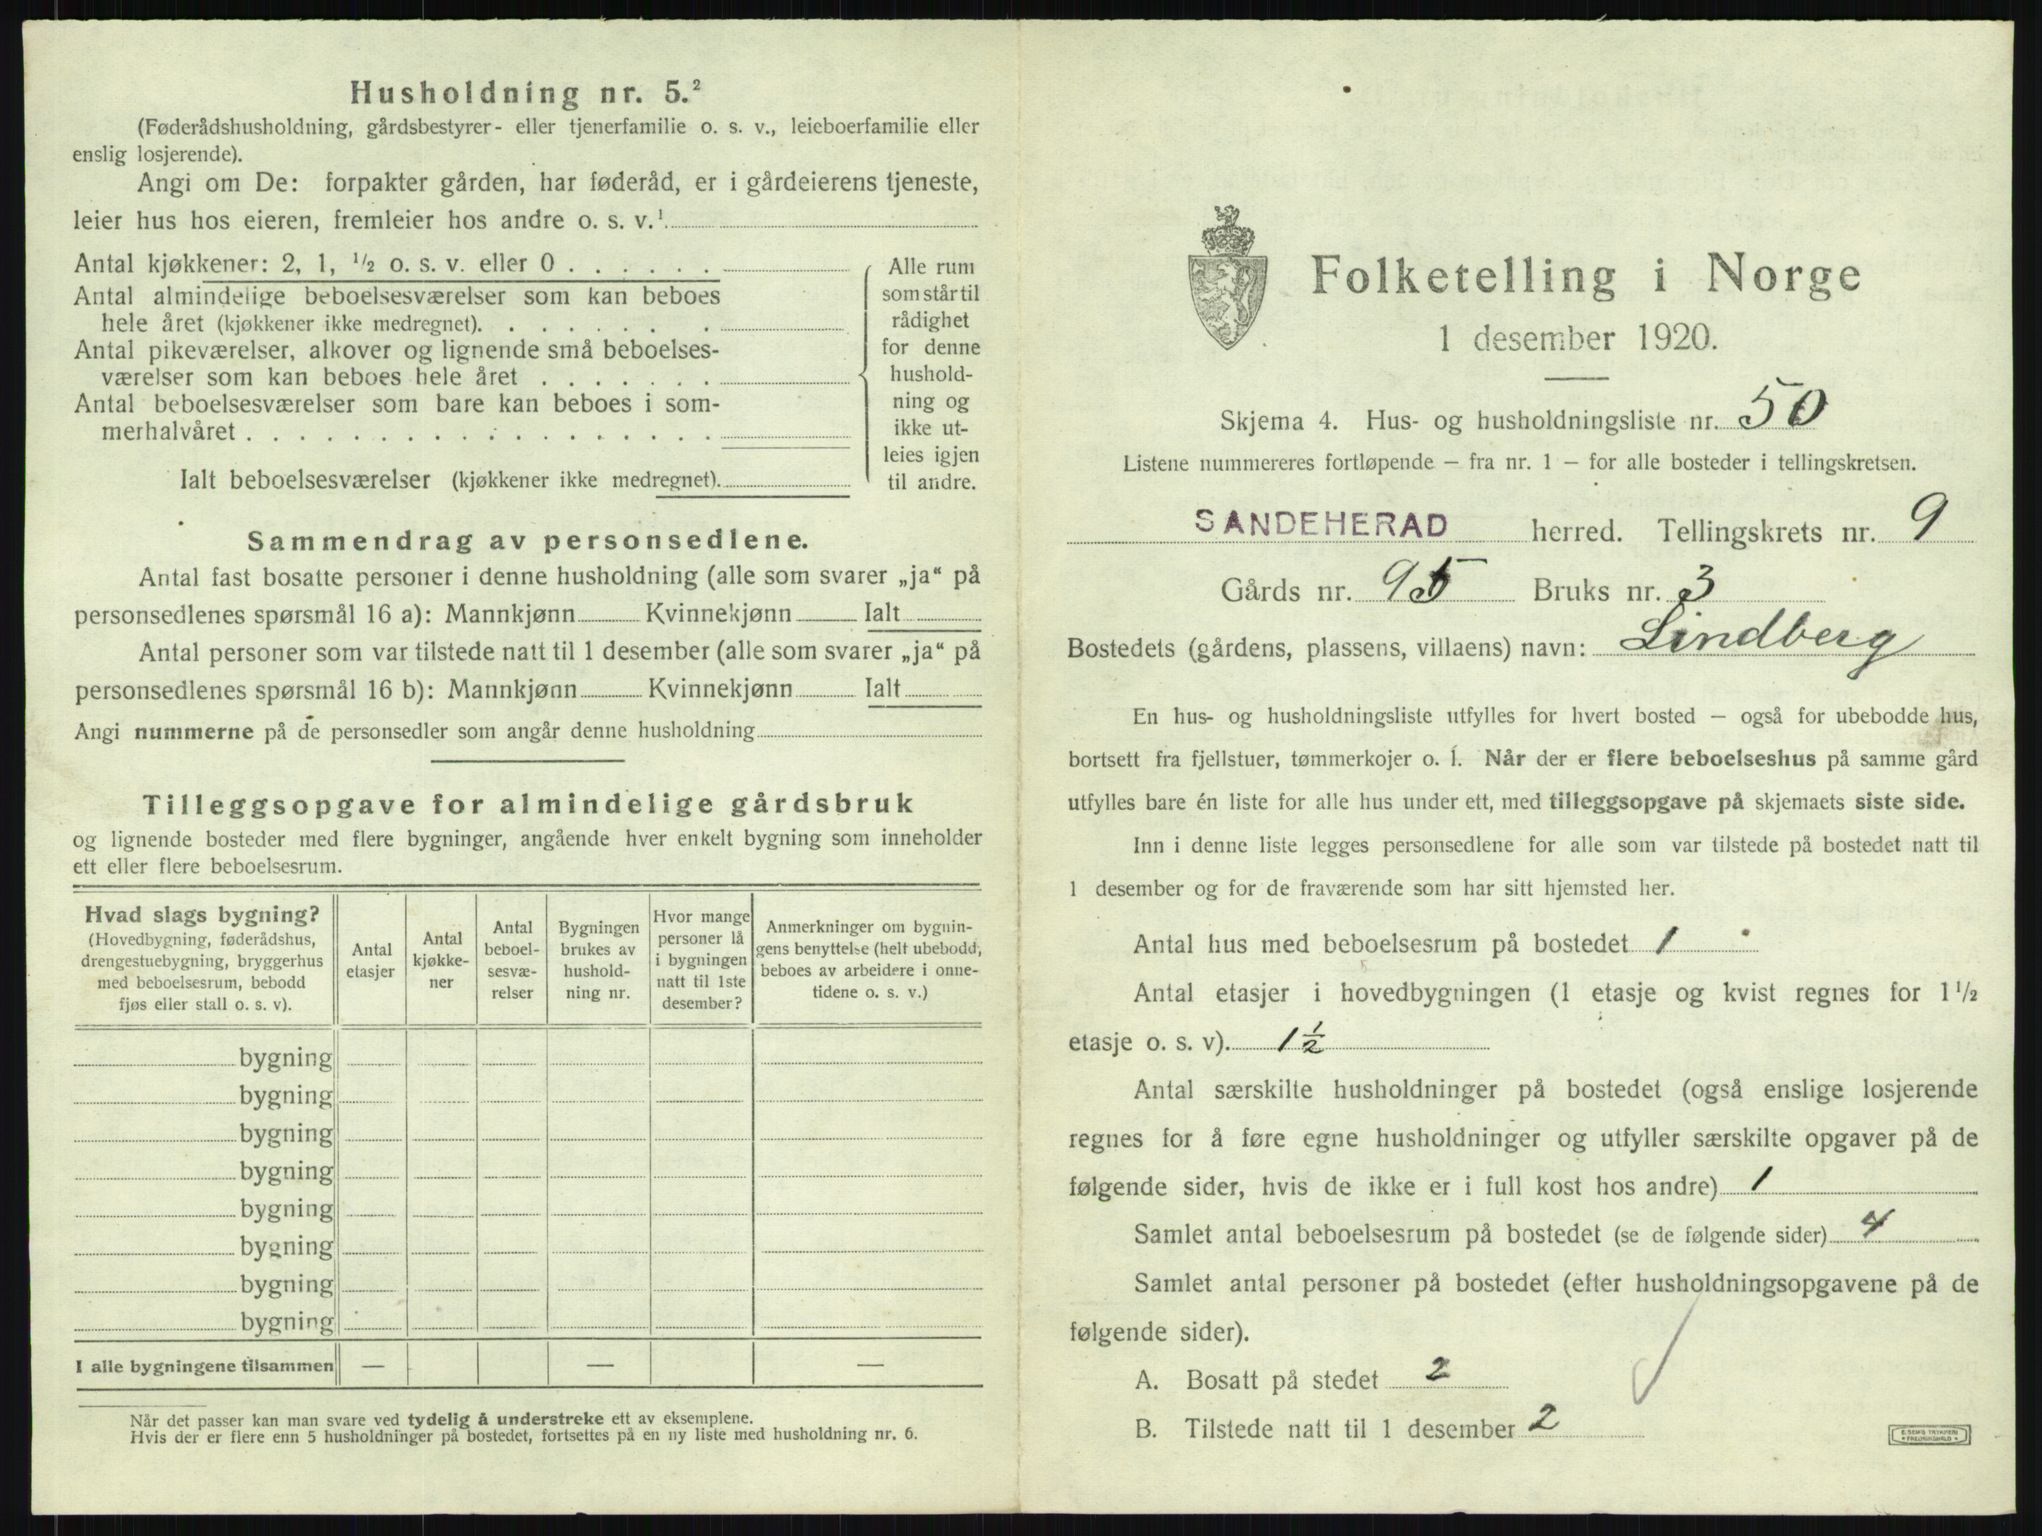 Husholdning nr. 5.²
(Føderådshusholdning, gårdsbestyrer- eller tjenerfamilie o. s. v., leieboerfamilie eller
enslig losjerende).
Angi om De: forpakter gården, har føderåd, er i gårdeierens tjeneste,
leier hus hos eieren, fremleier hos andre o. s. v.¹
Antal kjøkkener: 2, 1, ¹/₂ o. s. v. eller 0 . . . . . .
Antal almindelige beboelsesværelser som kan beboes
hele året (kjøkkener ikke medregnet). . . . . . . .
Antal pikeværelser, alkover og lignende små beboelses-
værelser som kan beboes hele året . . . . . . .
Antal beboelsesværelser som bare kan beboes i som-
merhalvåret . . . . . . . . . . . . . . . . . .
Ialt beboelsesværelser (kjøkkener ikke medregnet).
Alle rum
som står til
rådighet
for denne
hushold-
ning og
ikke ut-
leies igjen
til andre.
Sammendrag av personsedlene.
Antal fast bosatte personer i denne husholdning (alle som svarer „ja“ på
personsedlenes spørsmål 16 a): Mannkjønn Kvinnekjønn Ialt
Antal personer som var tilstede natt til 1 desember (alle som svarer „ja“ på
personsedlenes spørsmål 16 b): Mannkjønn Kvinnekjønn Ialt
Angi nummerne på de personsedler som angår denne husholdning
Tilleggsopgave for almindelige gårdsbruk
og lignende bosteder med flere bygninger, angående hver enkelt bygning som inneholder
ett eller flere beboelsesrum.
Hvad slags bygning?
(Hovedbygning, føderådshus,
drengestuebygning, bryggerhus
med beboelsesrum, bebodd
fjøs eller stall o. s. v).
Antal
etasjer
Antal
kjøkke-
ner
Antal
beboel-
sesvæ-
relser
Bygningen
brukes av
hushold-
ning nr.
Hvor mange
personer lå
i bygningen
natt til 1ste
desember?
Anmerkninger om bygnin-
gens benyttelse (helt ubebodd,
beboes av arbeidere i onne-
tidene o. s. v.)
bygning
bygning
bygning
bygning
bygning
bygning
bygning
bygning
I alle bygningene tilsammen — — —
Når det passer kan man svare ved tydelig å understreke ett av eksemplene.
Hvis der er flere enn 5 husholdninger på bostedet, fortsettes på en ny liste med husholdning nr. 6.
Folketelling i Norge
1 desember 1920.
Skjema 4. Hus- og husholdningsliste nr. 50
Listene nummereres fortløpende — fra nr. 1 — for alle bosteder i tellingskretsen.
SANDEHERAD herred. Tellingskrets nr. 9
Gårds nr. 95 Bruks nr. 3
Bostedets (gårdens, plassens, villaens) navn: Lindberg
En hus- og husholdningsliste utfylles for hvert bosted — også for ubebodde hus,
bortsett fra fjellstuer, tømmerkojer o. l. Når der er flere beboelseshus på samme gård
utfylles bare én liste for alle hus under ett, med tilleggsopgave på skjemaets siste side.
Inn i denne liste legges personsedlene for alle som var tilstede på bostedet natt til
1 desember og for de fraværende som har sitt hjemsted her.
Antal hus med beboelsesrum på bostedet 1
Antal etasjer i hovedbygningen (1 etasje og kvist regnes for 1 ¹/₂
etasje o. s. v). 1 ½
Antal særskilte husholdninger på bostedet (også enslige losjerende
regnes for å føre egne husholdninger og utfyller særskilte opgaver på de
følgende sider, hvis de ikke er i full kost hos andre) 1
Samlet antal beboelsesrum på bostedet (se de følgende sider) 4
Samlet antal personer på bostedet (efter husholdningsopgavene på de
følgende sider).
A. Bosatt på stedet 2
B. Tilstede natt til 1 desember 2